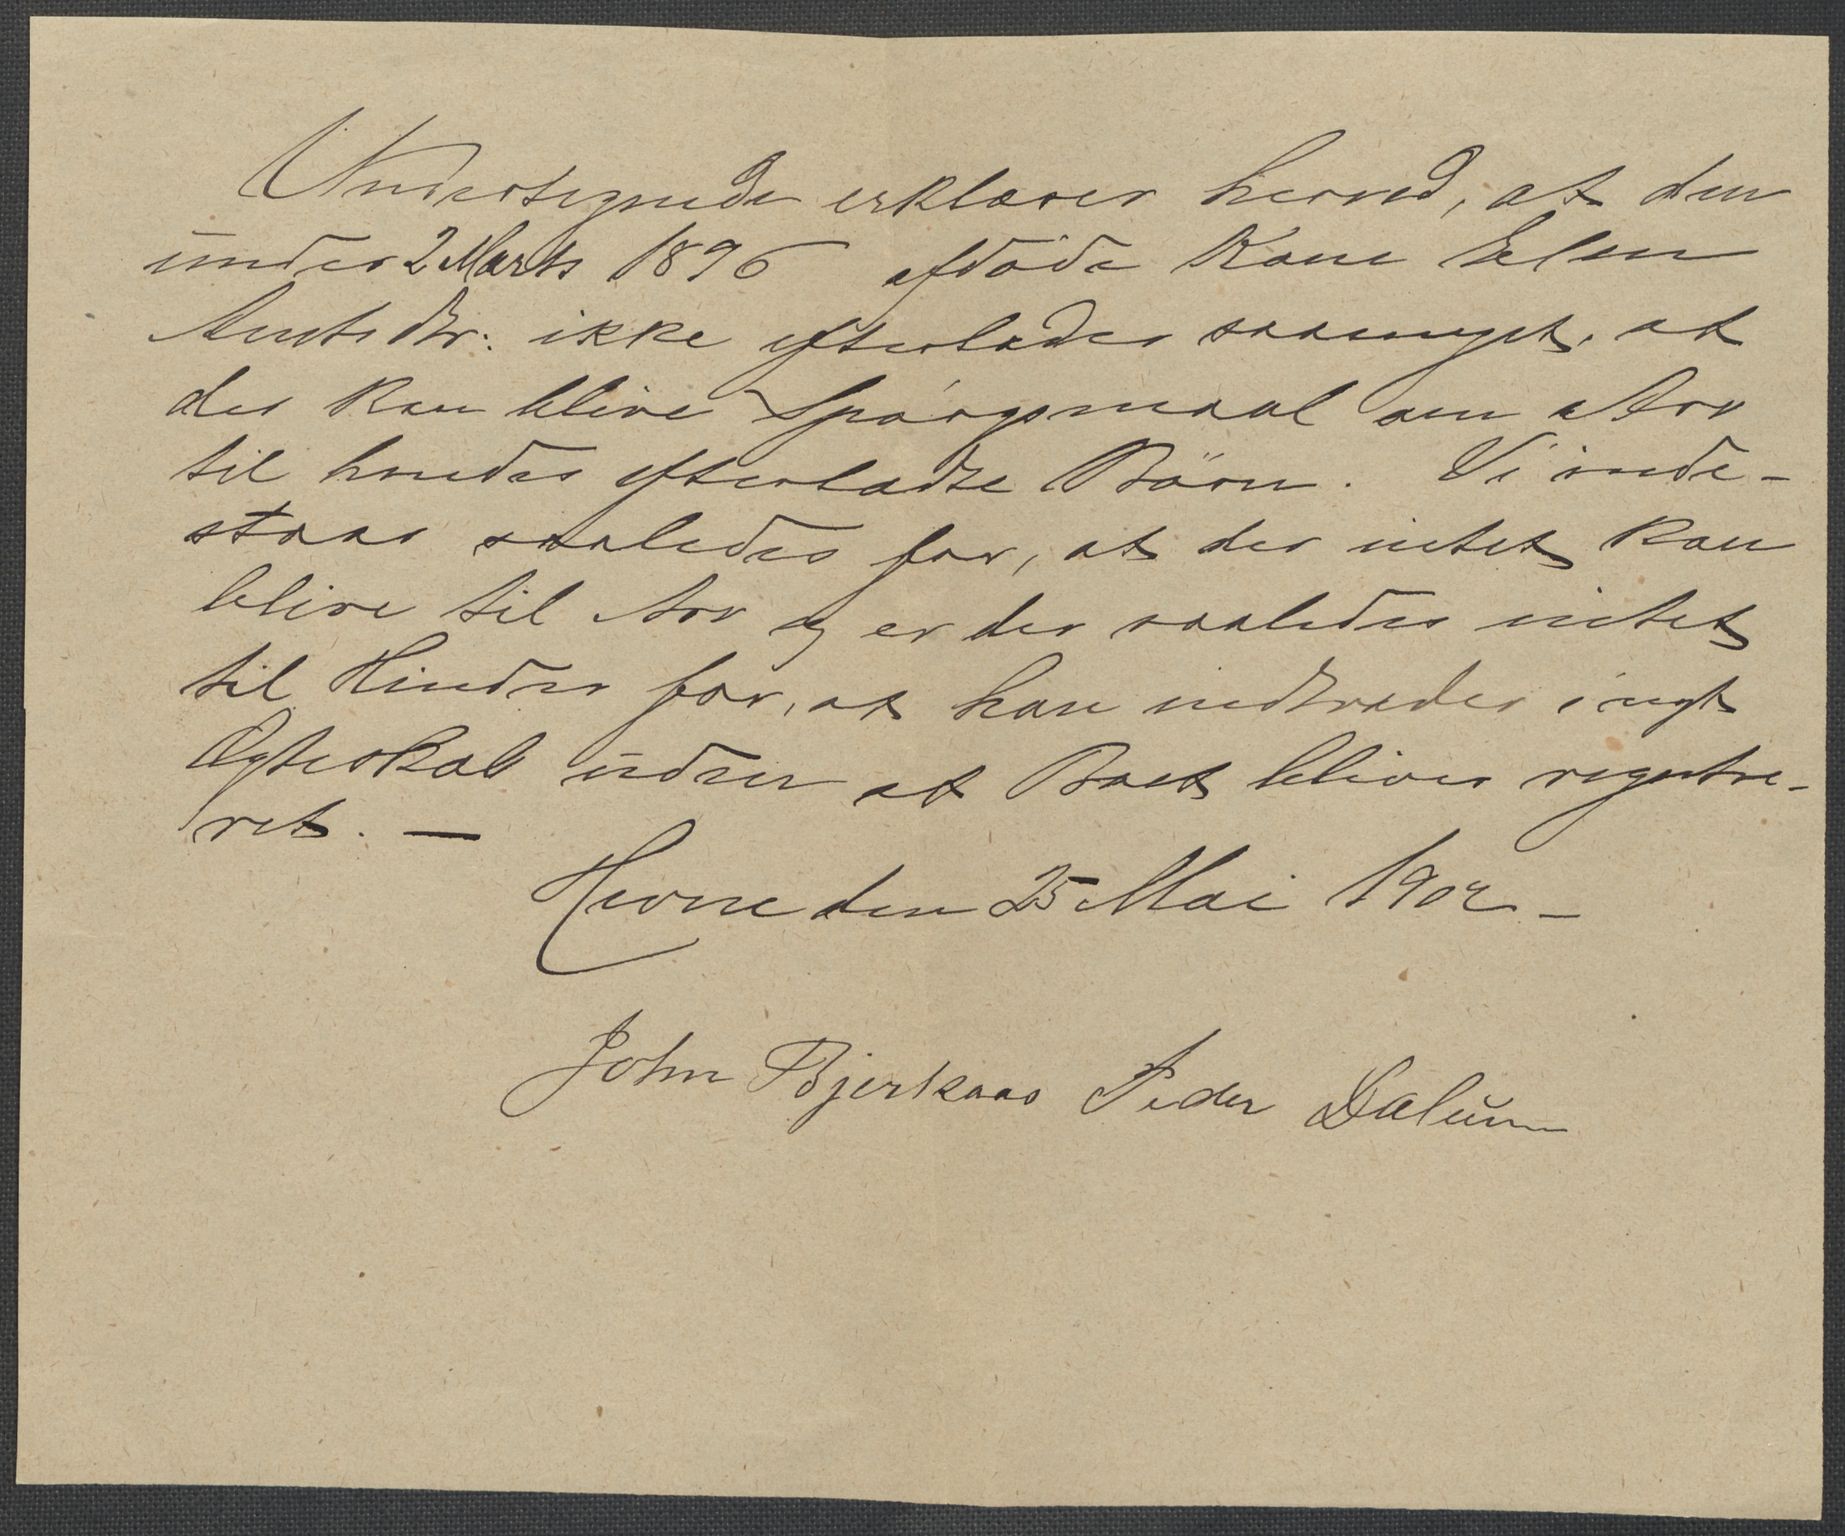 Undertegnede erklærer herved, at den
under 2 Marts 1896 afdöde Kone Elen
dtr: ikke efterlader saameget, at
der kan blive Spörgsmaal om Arv
til hendes efterladte Börn. Vi inde-
staar saaledes for, at der intet kan
blive til Arv og er der saaledes intet
til Hinder for, at han indtræder i nyt
Ægteskab uden at Boet bliver registre-
ret. —
Hevne den 25 Mai 1902 –
John Bjerkaas Peder Dalum